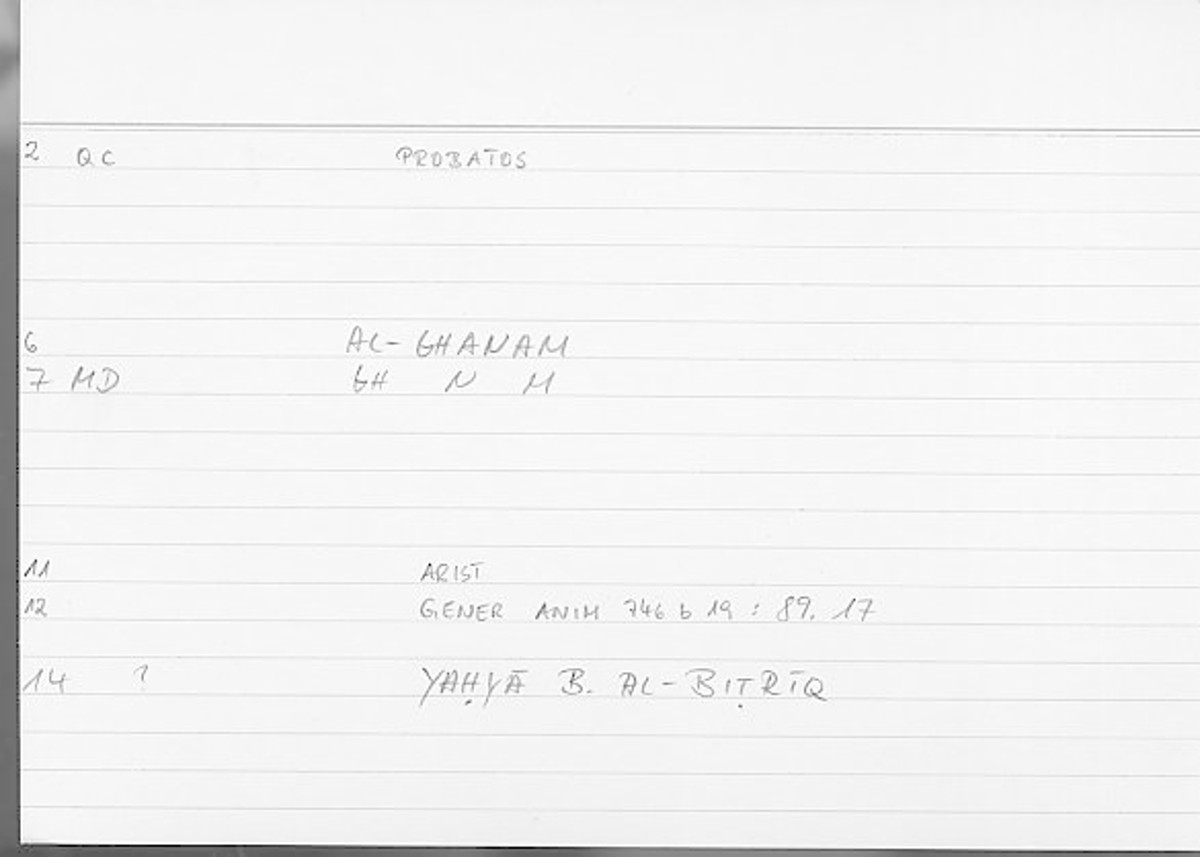 2 QC PROBATOS
6 AL-GHANAM
7 MD GH N M
11 ARIST
12 GENER ANIM 746 b 19 : 89. 17
14 ? YAḤYĀ B. AL-BIṬRĪQ